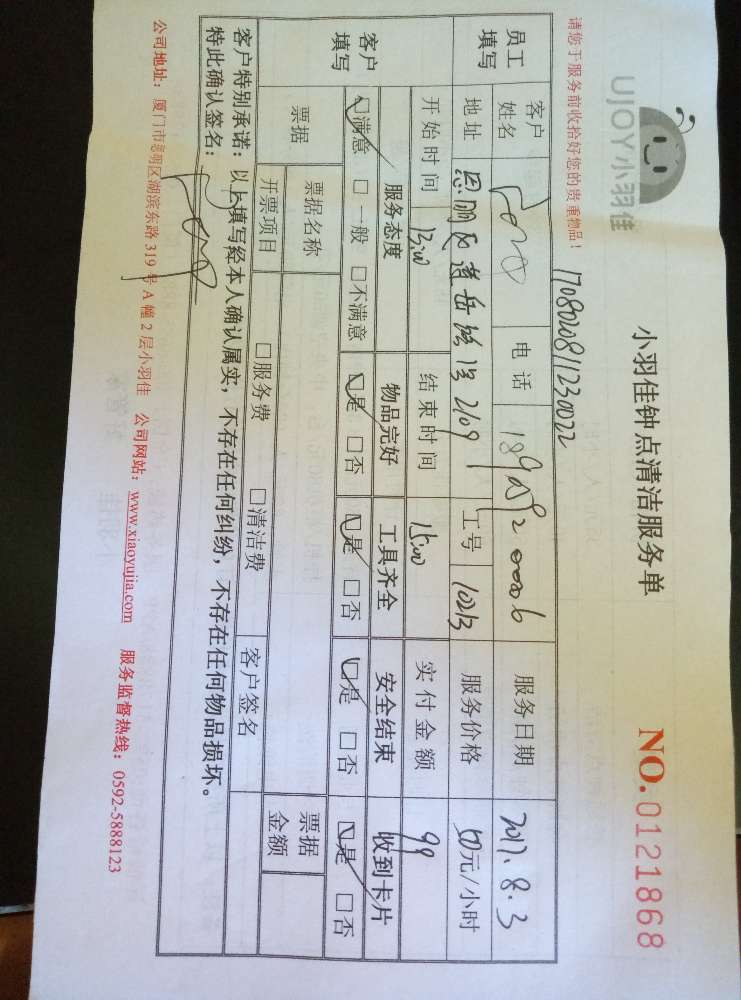 UJOY小羽佳
小羽佳钟点清洁服务单
NO.0121868
请您于服务前收拾好您的贵重物品!
员工填写
客户姓名
电话
服务日期 2017.8.3
地址
工号 10213
服务价格 50元/小时
开始时间 13:00
结束时间 15:00
实付金额 99
客户填写
服务态度 物品完好 工具齐全 安全结束 收到卡片
☑满意 □一般 □不满意 ☑是 □否 ☑是 □否 ☑是 □否 ☑是 □否
票据
票据名称 □服务费 □清洁费 票据金额
开票项目 客户签名
客户特别承诺:以上填写经本人确认属实,不存在任何纠纷,不存在任何物品损坏。
特此确认签名:
公司地址:厦门市思明区湖滨东路319号A幢2层小羽佳 公司网站:www.xiaoyujia.com 服务监督热线:0592-5888123